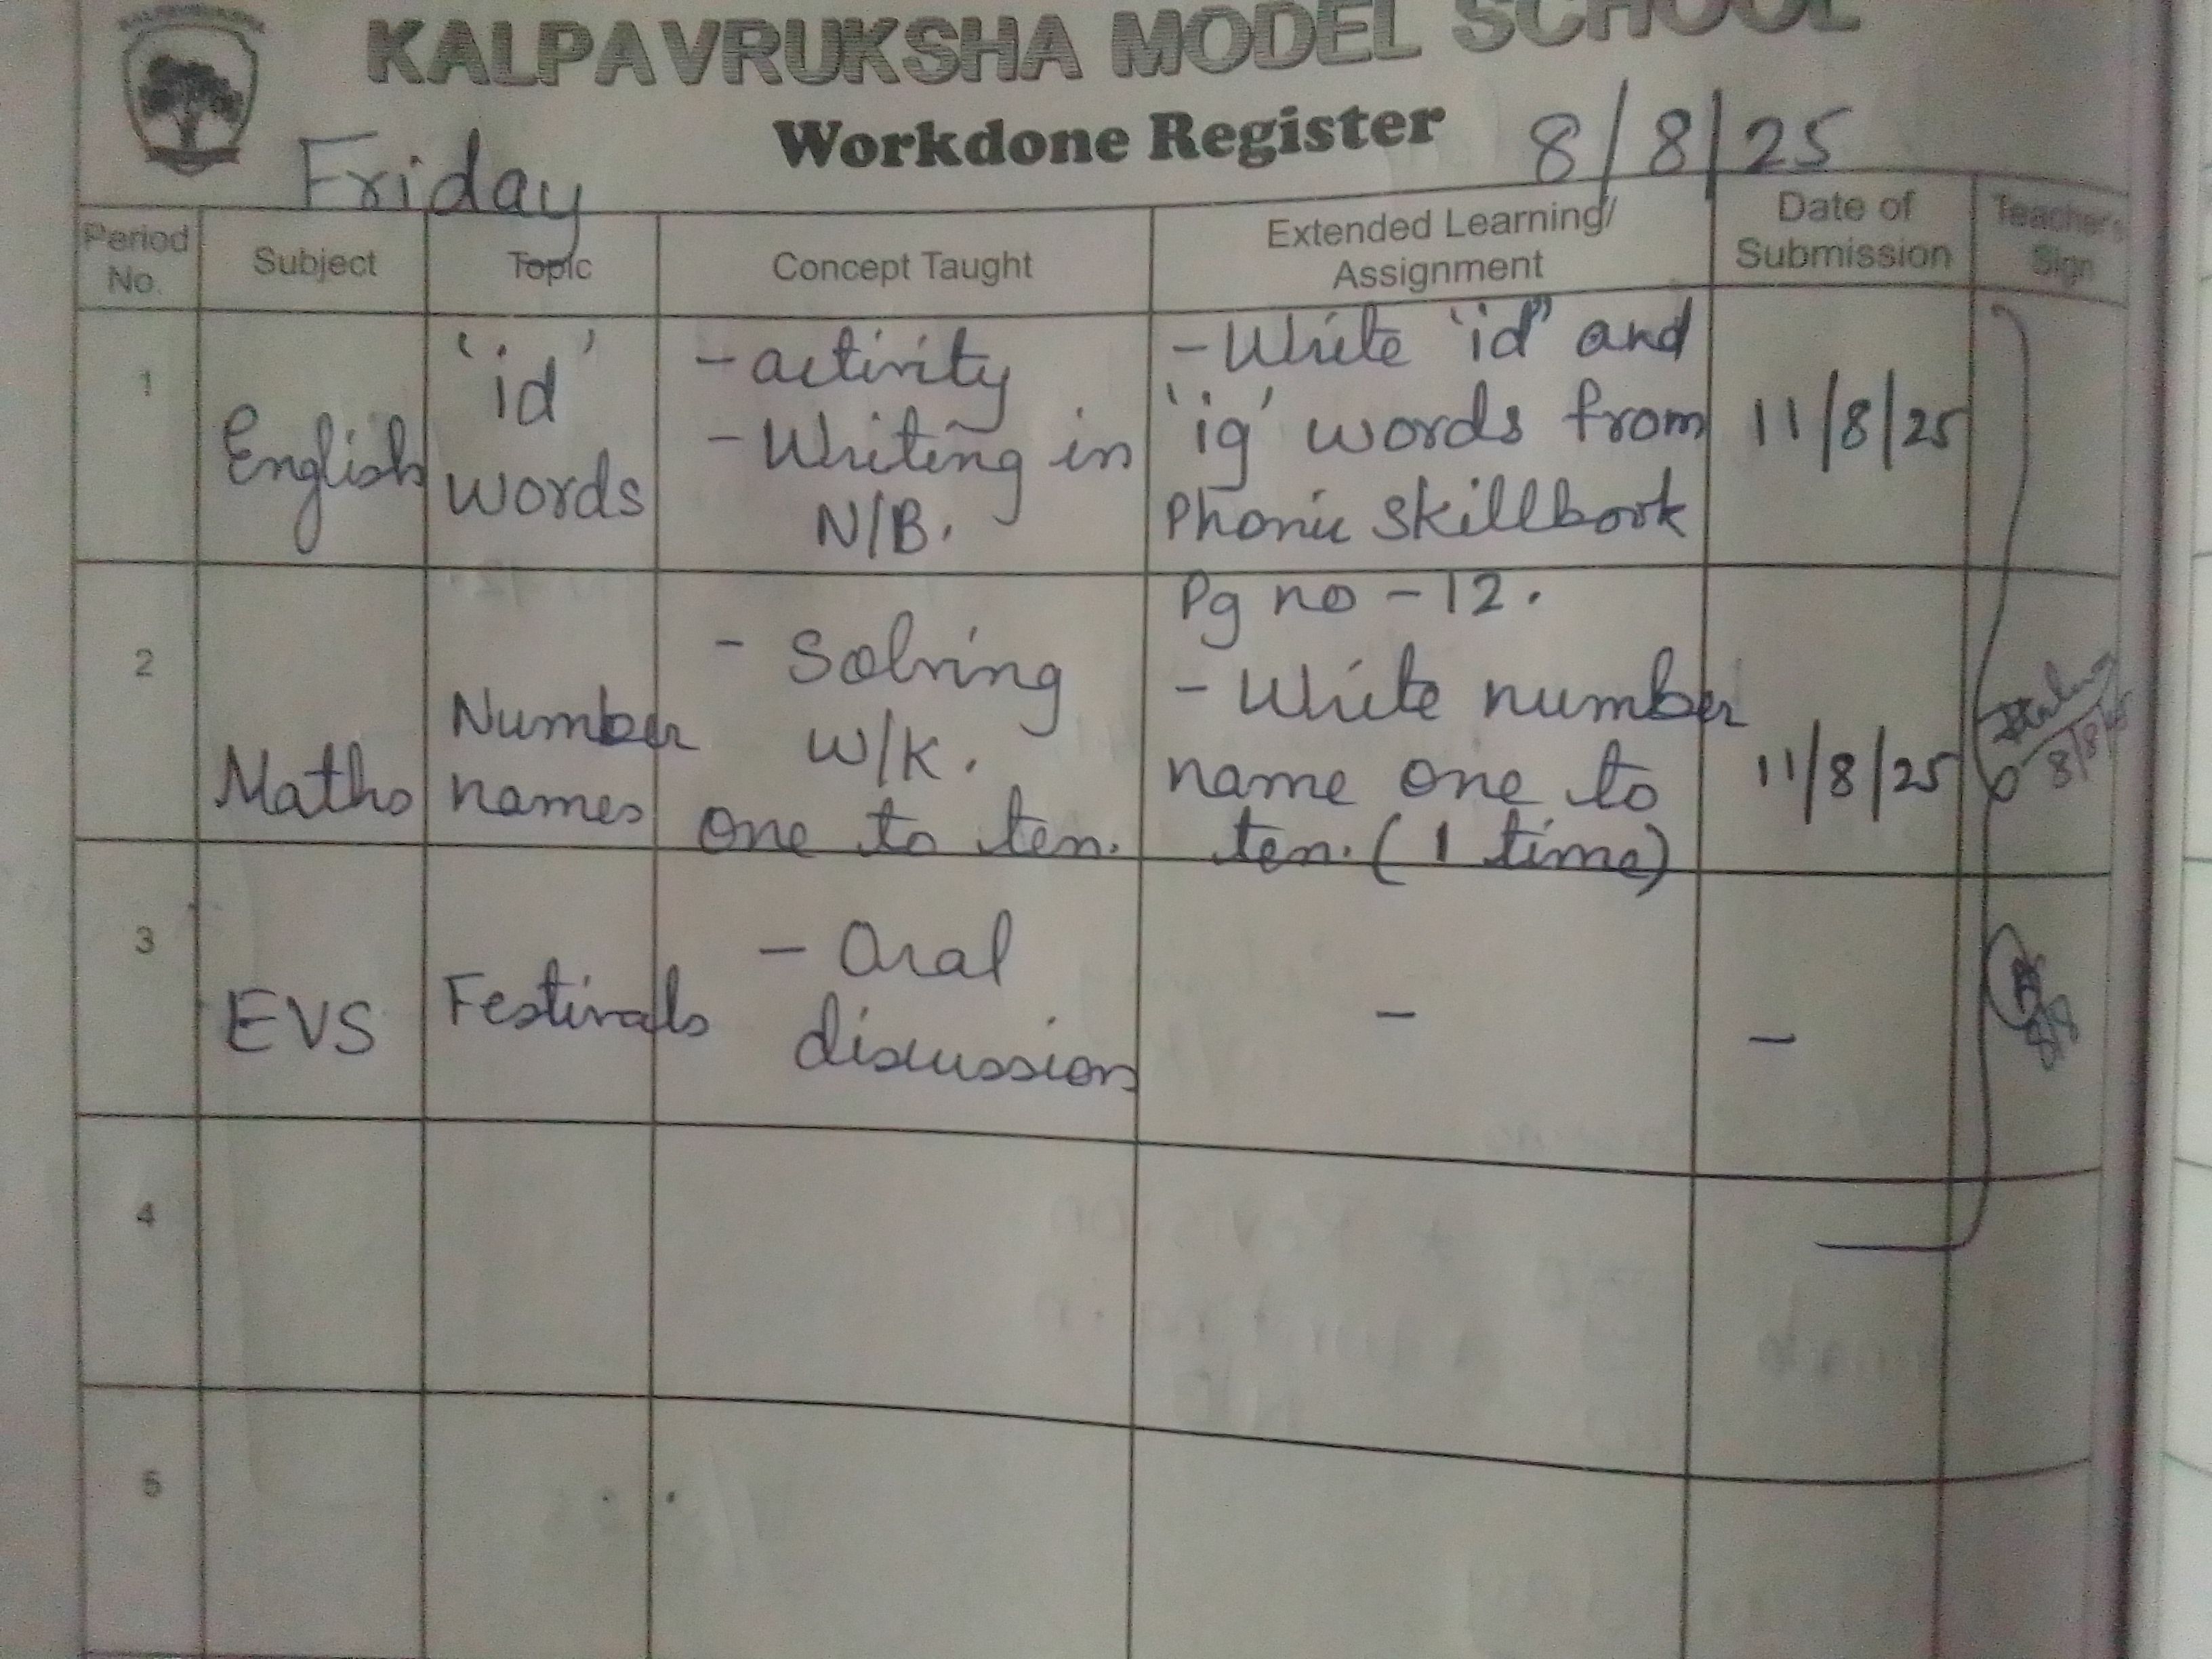 KALPAVRUKSHA MODEL SCHOOL
Workdone Register
Friday
8/8/25
Period No.
Subject
Topic
Concept Taught
Extended Learning/
Assignment
Date of
Submission
Teacher's
Sign
1
English
'id'
words
- activity
- Writing in
N/B.
- Write 'id" and
'ig' words from
Phonic Skillbook
Pg no - 12.
11/8/25
2
Maths
Number
names
- Solving
W/K.
one to ten.
- Write number
name one to
ten. (1 time)
11/8/25
8/8/25
3
EVS
Festivals
- Oral
discussion
-
-
4
5